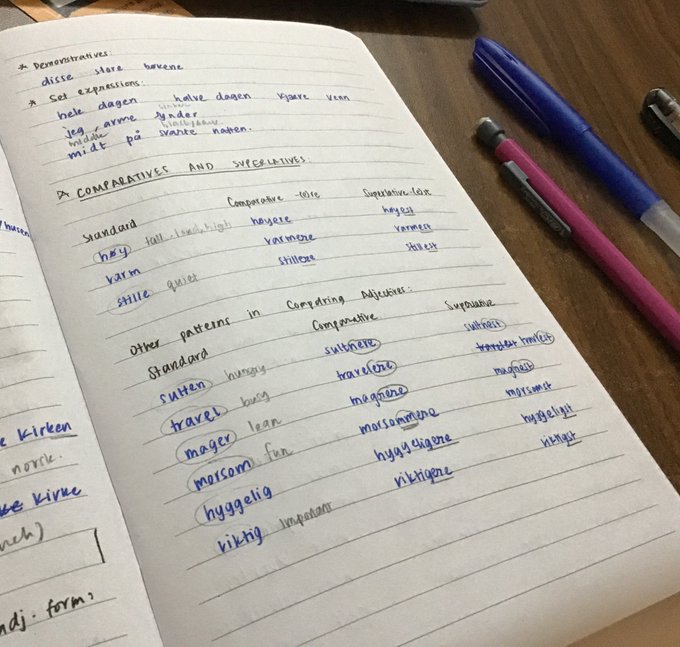 * Demonstratives:
disse store bøkene
* Set expressions:
hele dagen halve dagen kjære venn
jeg arme synder
middle
midt på svarte natten.
* COMPARATIVES AND SUPERLATIVES:
Standard Comparative -(e)re Superlative -(e)st
høy tall, loud, high høyere høyest
varm varmere varmest
stille quiet stillere stillest
Other patterns in Comparing Adjectives:
Standard Comparative Superlative
sulten hungry sultnere sultnest
travel busy travelere travlest
mager lean magrere magrest
morsom fun morsommere morsomst
hyggelig hyggeligere hyggeligst
viktig important viktigere viktigst
/husen
kirken
norsk.
kirke
adj. form,